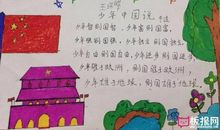 王欣哗
少年中国说 节选
少年智则国智，少年富则国富，
少年强则国强，少年独立则国独立，
少年自由则国自由，少年进步则国进步，
少年胜于欧洲，则国胜于欧洲，
少年雄于地球，则国雄于地球。
板报网